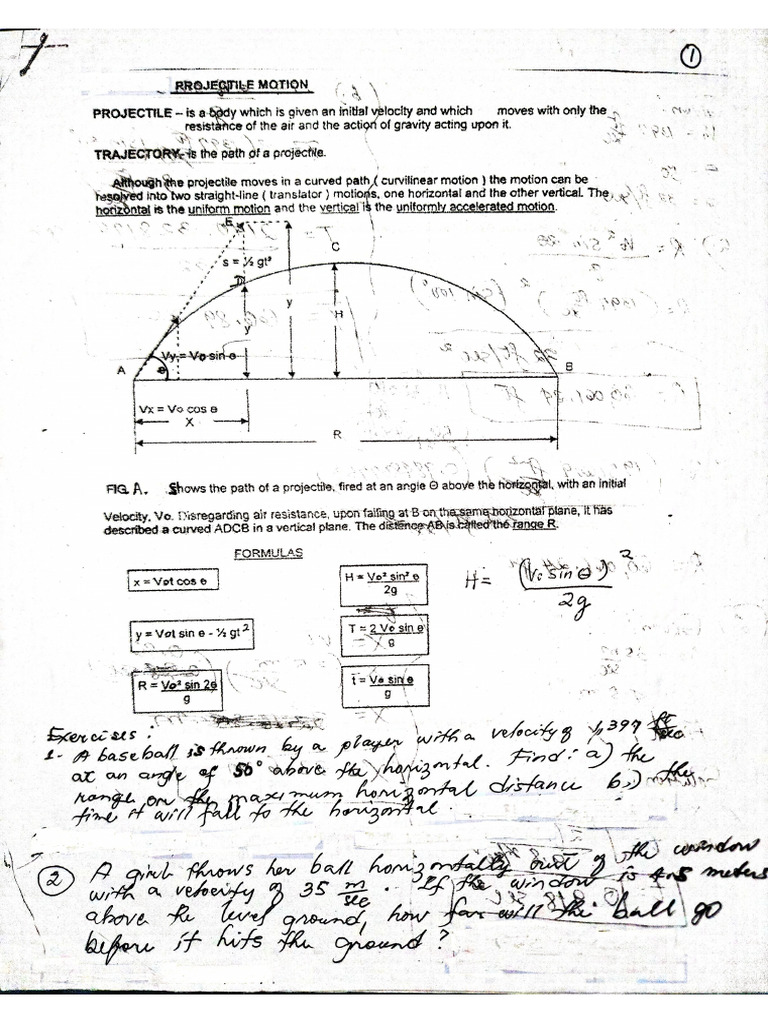 1
PROJECTILE MOTION
PROJECTILE – is a body which is given an initial velocity and which moves with only the
resistance of the air and the action of gravity acting upon it.
TRAJECTORY- is the path of a projectile.
Although the projectile moves in a curved path ( curvilinear motion ) the motion can be
resolved into two straight-line ( translator ) motions, one horizontal and the other vertical. The
horizontal is the uniform motion and the vertical is the uniformly accelerated motion.
E
C
s = ½ gt²
D
y
y
H
Vy = Vo sin θ
A
θ
B
Vx = Vo cos θ
X
R
FIG. A. Shows the path of a projectile, fired at an angle Θ above the horizontal, with an initial
Velocity, Vo. Disregarding air resistance, upon falling at B on the same horizontal plane, it has
described a curved ADCB in a vertical plane. The distence AB is called the range R.
FORMULAS
x = Vot cos θ
H = Vo² sin² θ
2g
H = (Vo sin θ)²
2g
y = Vot sin θ - ½ gt²
T = 2 Vo sin θ
g
R = Vo² sin 2θ
g
t = Vo sin θ
g
Exercises :
1- A baseball is thrown by a player with a velocity of 1,397 ft/sec
at an angle of 50° above the horizontal. Find: a) the
range or the maximum horizontal distance b.) the
time it will fall to the horizontal.
2 A girl throws her ball horizontally out of the window
with a velocity of 35 m/sec. If the window is 4.5 meters
above the level ground, how far will the ball go
before it hits the ground?